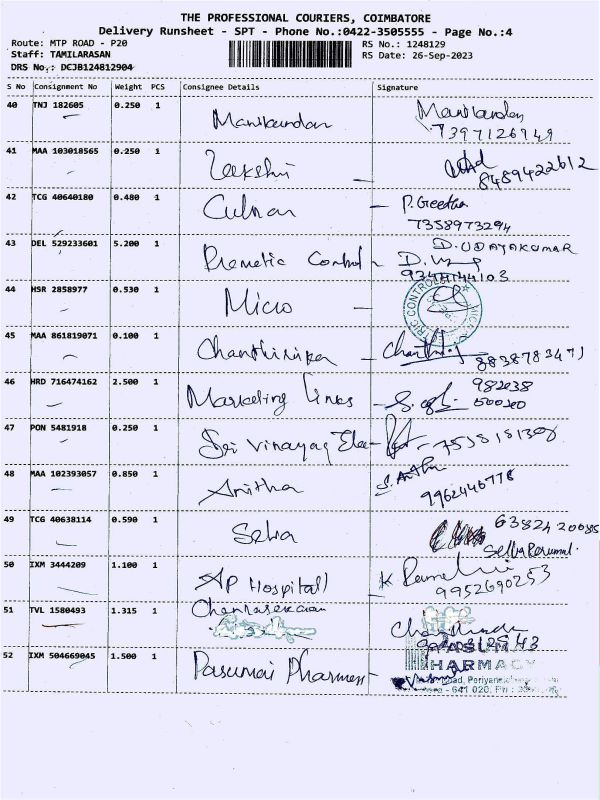 THE PROFESSIONAL COURIERS, COIMBATORE
Delivery Runsheet - SPT - Phone No.:0422-3505555 - Page No.:4
Route: MTP ROAD - P20 RS No.: 1248129
Staff: TAMILARASAN RS Date: 26-Sep-2023
DRS No.: DCJB124812904
S No Consignment No Weight PCS Consignee Details Signature
40 TNJ 182605 0.250 1 Manikandan Manikandan
7397126949
41 MAA 103018565 0.250 1
8489422612
42 TCG 40640180 0.480 1 P. Geetha
7358973294
43 DEL 529233601 5.200 1 Control D. UDAYAKUMAR
9344144103
44 HSR 2858977 0.530 1 Micro
45 MAA 861819071 0.100 1
8838783471
46 HRD 716474162 2.500 1 Marketing links 982038
500500
47 PON 5481918 0.250 1 Sri Vinayag Elec
48 MAA 102393057 0.850 1 Anitha
9962446778
49 TCG 40638114 0.590 1 Selva 6382420085
Selva Perumal.
50 IXM 3444209 1.100 1 AP Hospital K
9952690253
51 TVL 1580493 1.315 1
52 IXM 504669045 1.500 1 Pasumai PHARMACY
641 020